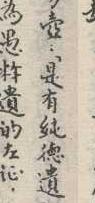 壺：「是有純德遺
為愚忤遺的左証，